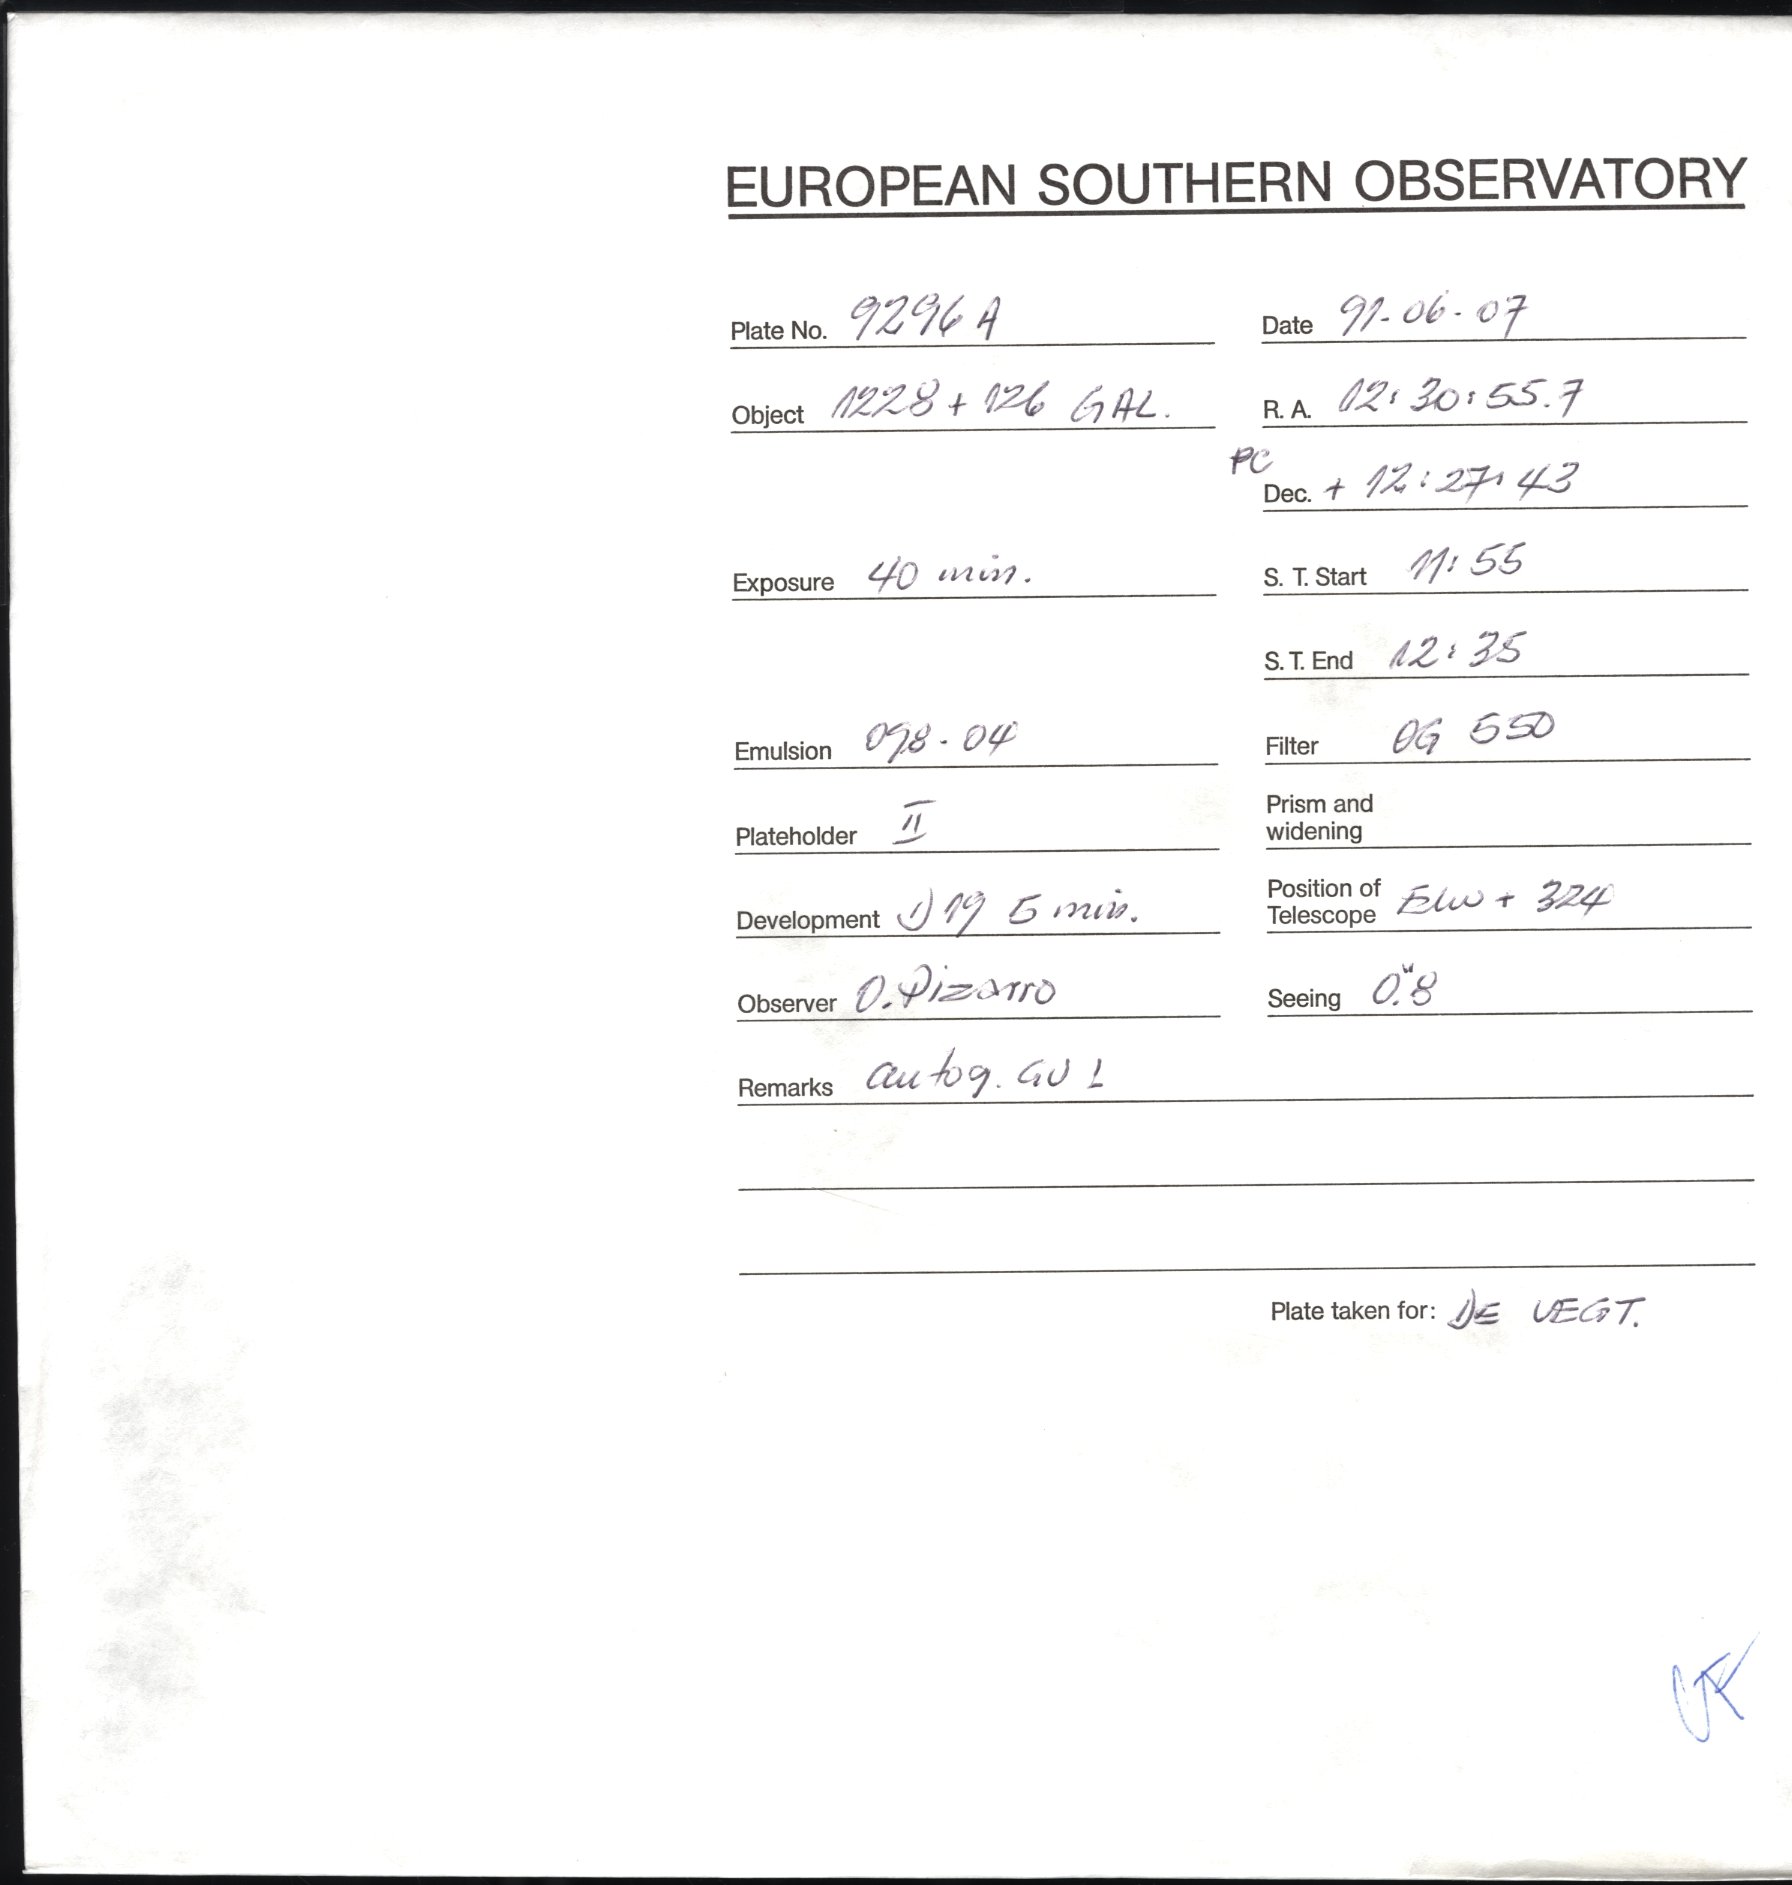 EUROPEAN SOUTHERN OBSERVATORY
Plate No. 9296 A
Date 91-06-07
Object 1228+126 GAL.
R. A. 12:30:55.7
PC
Dec. + 12:27:43
Exposure 40 min.
S. T. Start 11:55
S. T. End 12:35
Emulsion 098-04
Filter OG 550
Plateholder II
Prism and
widening
Development 19 5 min.
Position of
Telescope + 324
Observer O. Pizarro
Seeing 0."8
Remarks autog.
Plate taken for: DE VEGT.